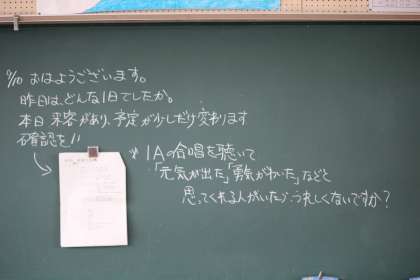 9/10 おはようございます。
昨日は、どんな1日でしたか。
本日 来客があり、予定が少しだけ変わります
確認を!!
※ 1Aの合唱を聴いて
「元気が出た」「勇気がわいた」などと
思ってくれる人がいたら、うれしくないですか?